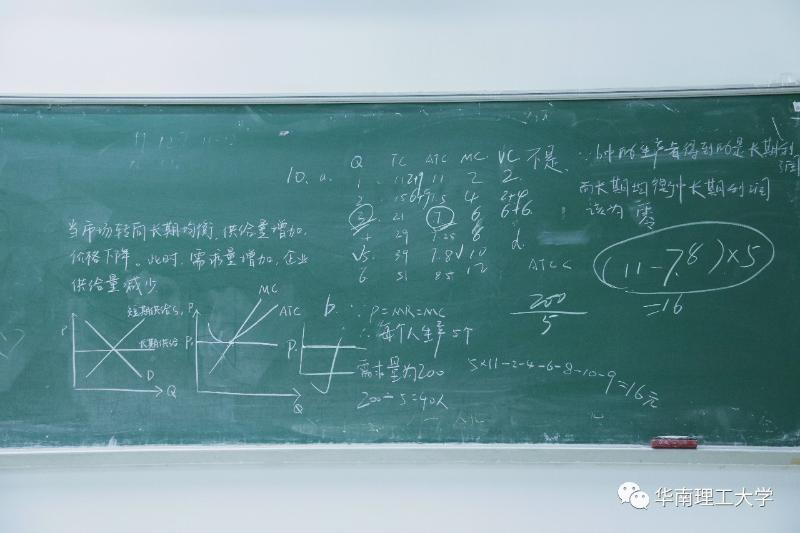 当市场转向长期均衡,供给量增加,
价格下降。此时,需求量增加,企业
供给量减少
P
短期供给S,
长期供给
D
Q
P
P.
MC
ATC
Q
10. a.
Q TC ATC MC VC
1 11 2+9 11 2 2
2 15 4 2+4
3 21 7 6 6+6
4 29 7.25 8
√5 39 7.8 √10
6 51 8.5 12
b. ∵ P=MR=MC
∴ 每个人生产5个
P.
需求量为200
200÷5=40人
不是.
d.
ATC
200
5
5×11-2-4-6-8-10-9=16元
∵b中的生产者得到的是长期利润
而长期均衡中长期利润
该为 零
(11-7.8)×5
=16
华南理工大学